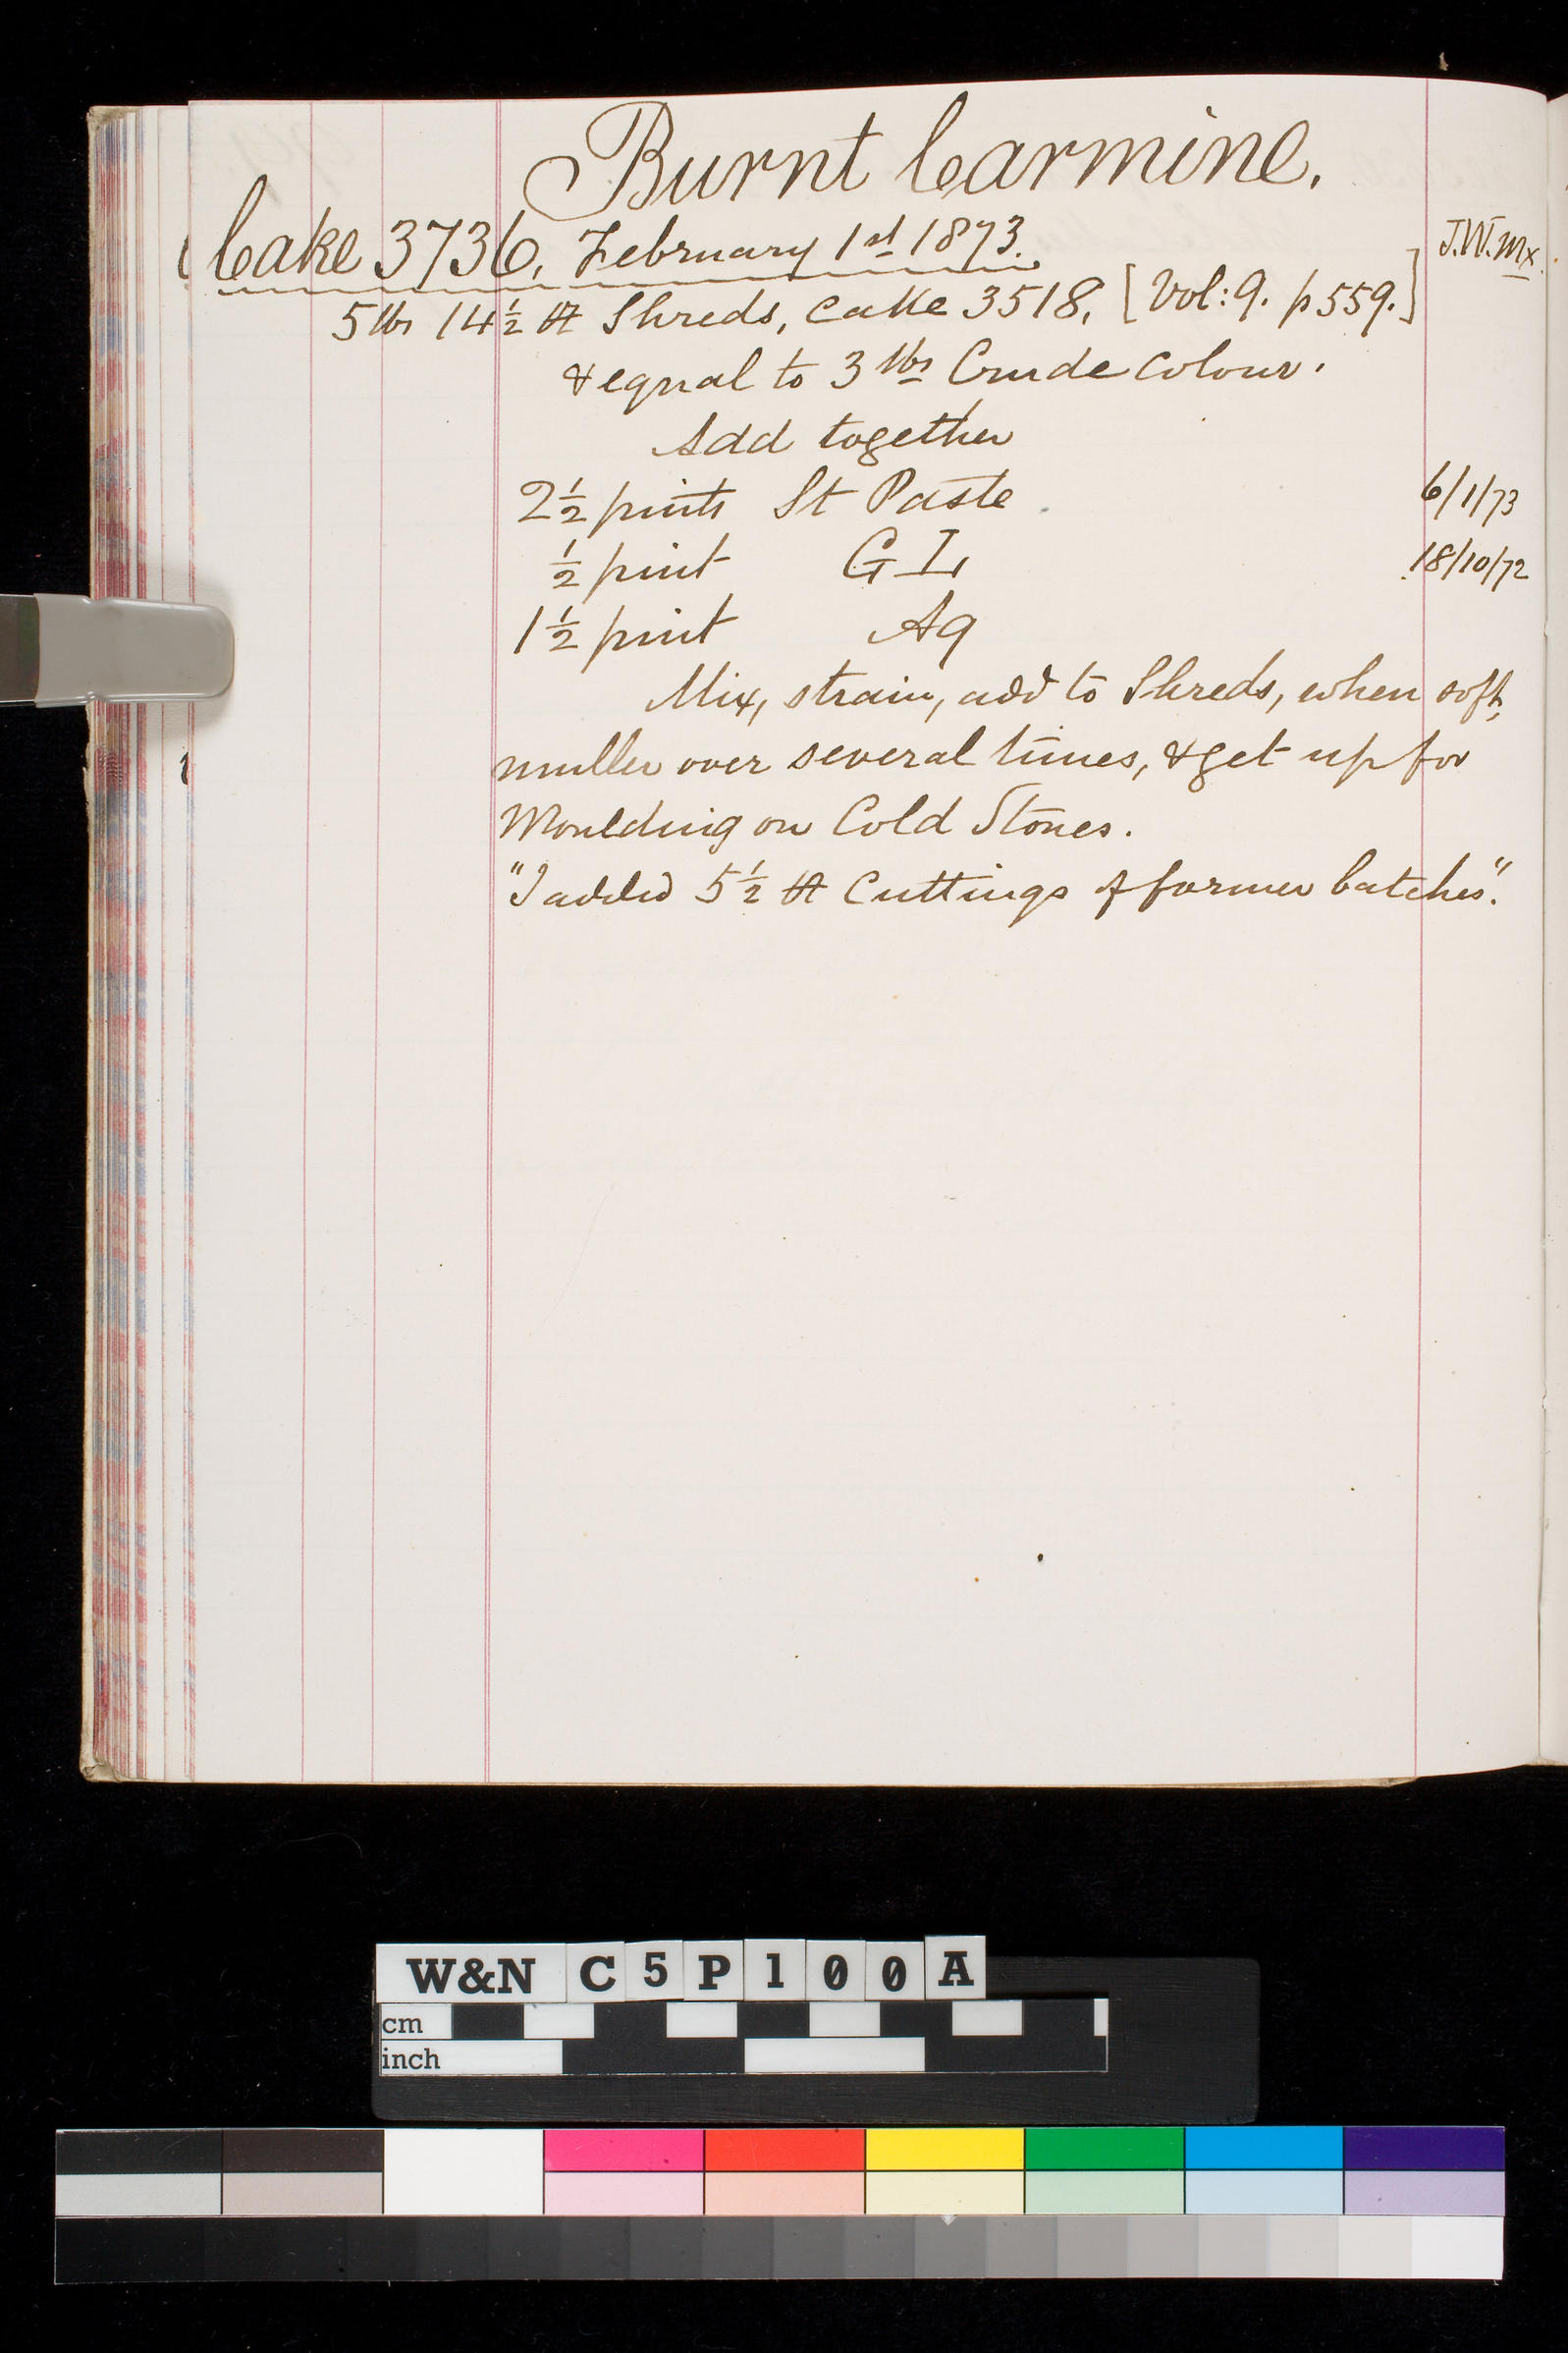 Burnt Carmine.
Cake 3736. February 1st 1873. J.W. Mx.
5 lbs 14½ Shreds, Cake 3518. [Vol: 9. p 559.]
& equal to 3 lbs Crude Colour.
Add together
2½ pints St Paste 6/1/73
½ pint G I 18/10/72
1½ pint Aq
Mix, strain, add to Shreds, when soft,
muller over several times, & get up for
Moulding on Cold Stones.
"I added 5½ Cuttings of former batches".
W&N C5P100A
cm
inch